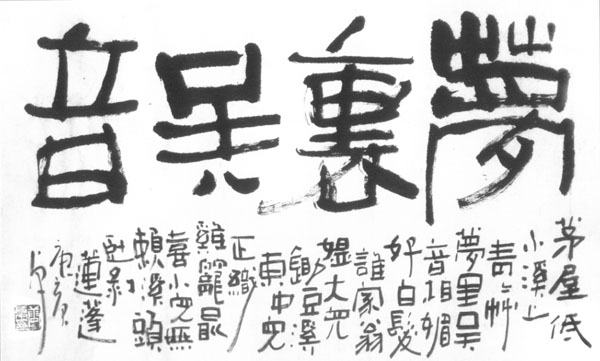 夢裏吳音
茅屋低
小溪上
青〻艸
夢里吴
音相媚
好白髮
誰家翁
媼大兒
鋤豆溪
東中兒
正織
雞籠最
喜小兒無
賴溪頭
卧剥
蓮蓬
庚寅